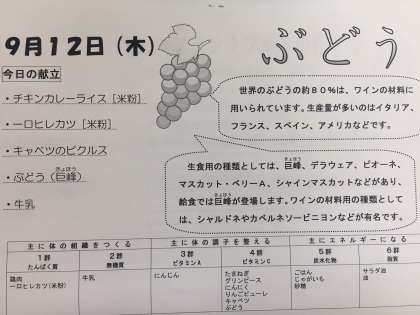 9月12日（木）
ぶどう
今日の献立
・チキンカレーライス［米粉］
・一口ヒレカツ［米粉］
・キャベツのピクルス
・ぶどう（巨峰）
きょほう
・牛乳
世界のぶどうの約８０％は、ワインの材料に
用いられています。生産量が多いのはイタリア、
フランス、スペイン、アメリカなどです。
生食用の種類としては、巨峰、デラウェア、ピオーネ、
きょほう
マスカット・ベリーA、シャインマスカットなどがあり、
給食では巨峰が登場します。ワインの材料用の種類として
きょほう
は、シャルドネやカベルネソービニヨンなどが有名です。
主に体の組織をつくる
主に体の調子を整える
主にエネルギーになる
1群 たんぱく質
2群 無機質
3群 ビタミンA
4群 ビタミンC
5群 炭水化物
6群 脂質
鶏肉
一口ヒレカツ(米粉)
牛乳
にんじん
たまねぎ
グリンピース
にんにく
りんごピューレ
キャベツ
ぶどう
ごはん
じゃがいも
砂糖
サラダ油
油